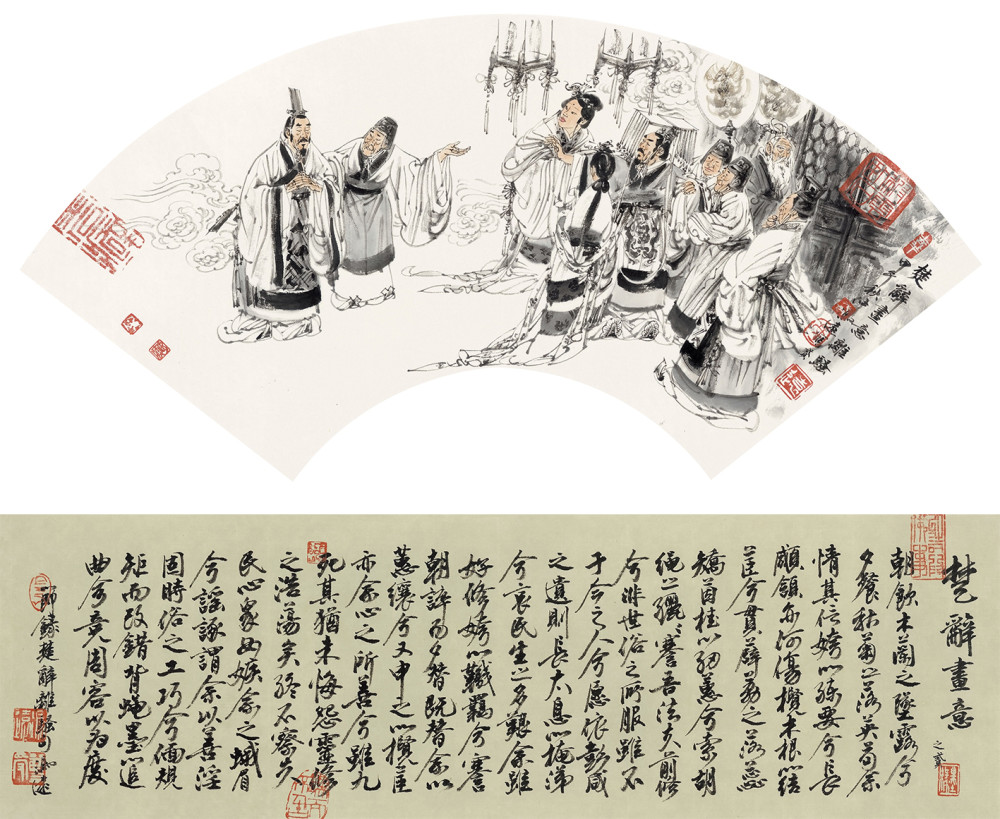 楚辭畫意離騷
甲午秋
楚辭畫意
朝飲木蘭之墜露兮
夕餐秋菊之落英苟余
情其信姱以練要兮長
顑頷亦何傷攬木根以結
茝兮貫薜荔之落蕊
矯菌桂以紉蕙兮索胡
繩之纚纚謇吾法夫前修
兮非世俗之所服雖不
于今之人兮愿依彭咸
之遺則長太息以掩涕
兮哀民生之多艱余雖
好修姱以鞿羈兮謇
朝誶而夕替既替余以
蕙纕兮又申之以攬茝
亦余心之所善兮雖九
死其猶未悔怨靈修
之浩蕩兮終不察夫
民心眾女嫉余之蛾眉
兮謠諑謂余以善淫
固時俗之工巧兮偭規
矩而改錯背繩墨以追
曲兮竞周容以為度
節錄楚辭離騷句